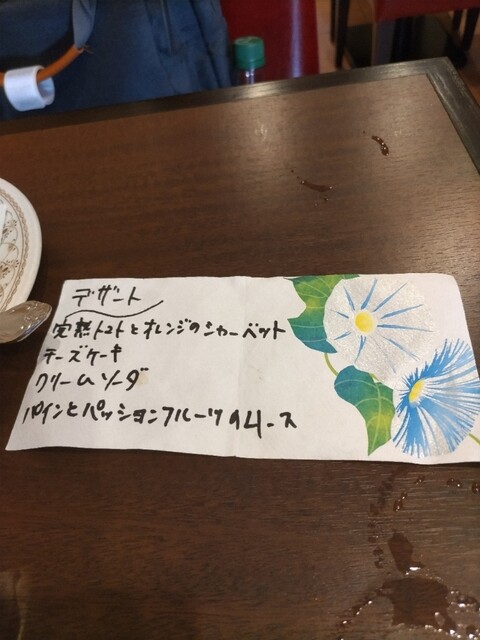 デザート
完熟トマトとオレンジのシャーベット
チーズケーキ
クリームソーダ
パインとパッションフルーツのムース